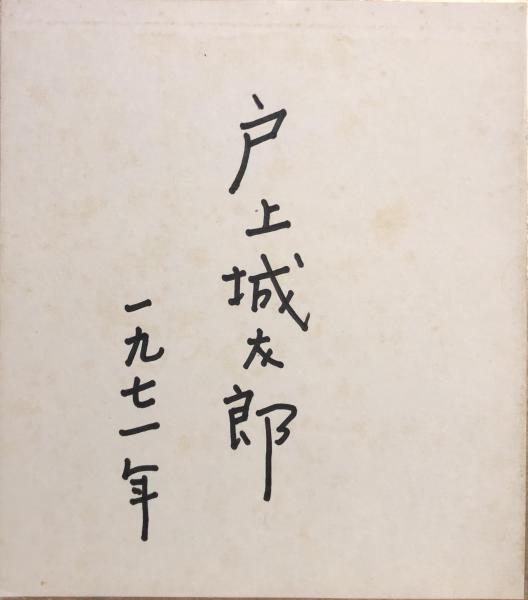 戸上城太郎
一九七一年